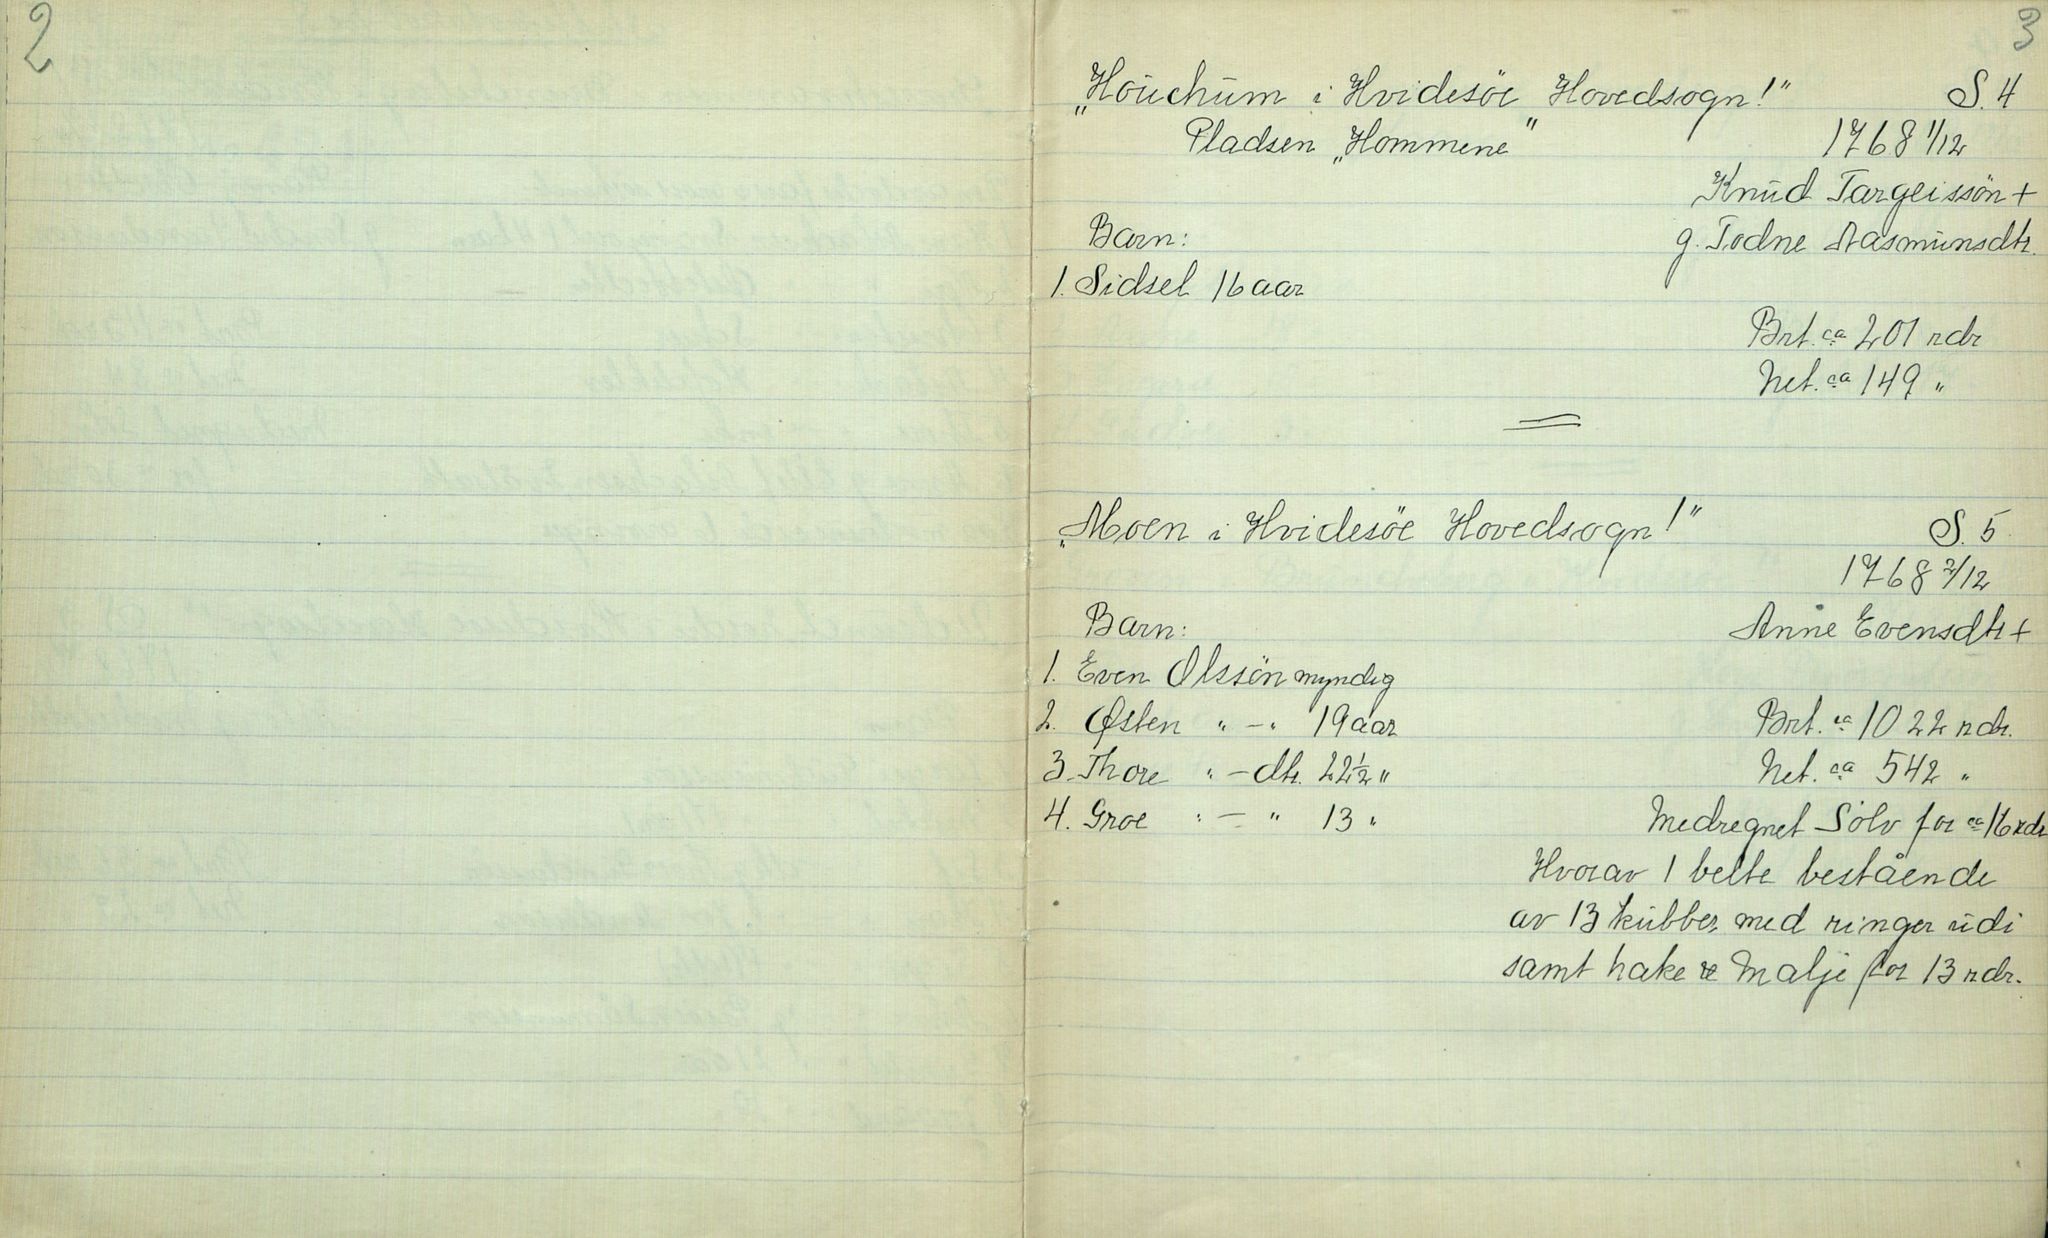 2
3
„Houchum i Hvidesöe Hovedsogn!" S. 4
Pladsen „Hommene" 1768 1/12
Knud Targeissön +
Barn: g. Todne Aasmunsdtr.
1. Sidsel 16 aar
Brt. ca 201 rdr
Net. ca 149 "
„Moen i Hvidesöe Hovedsogn!" S. 5
1768 2/12
Barn: Anne Evensdtr +
1. Even Olssön myndig
2. Østen " — " 19 aar Brt. ca 1022 rdr.
3. Thore " — dtr. 22 1/2 " Net. ca 542 "
4. Groe " — " 13 " Medregnet Sölv for ca 16 rdr
Hvorav 1 belte bestående
av 13 kubber med ringer udi
samt hake & Malje for 13 rdr.